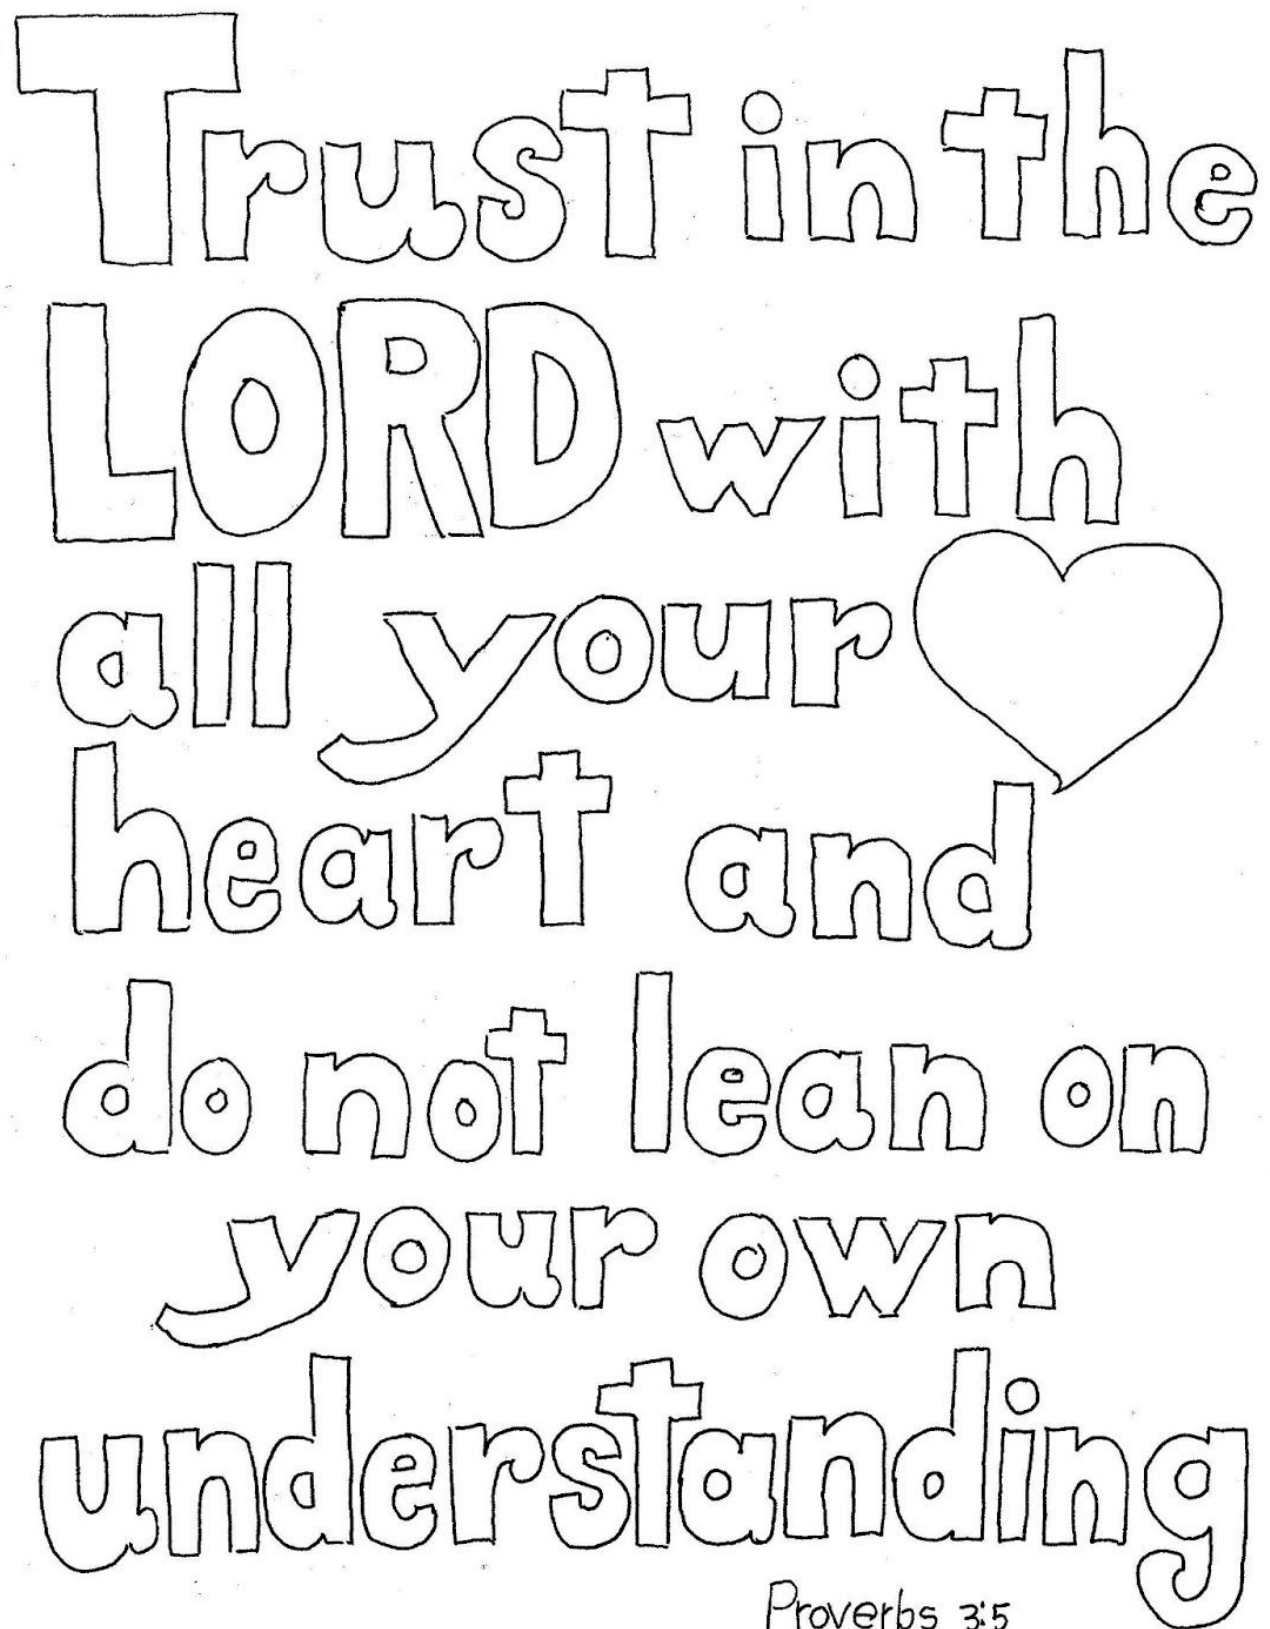 Trust in the
LORD with
all your
heart and
do not lean on
your own
understanding
Proverbs 3:5